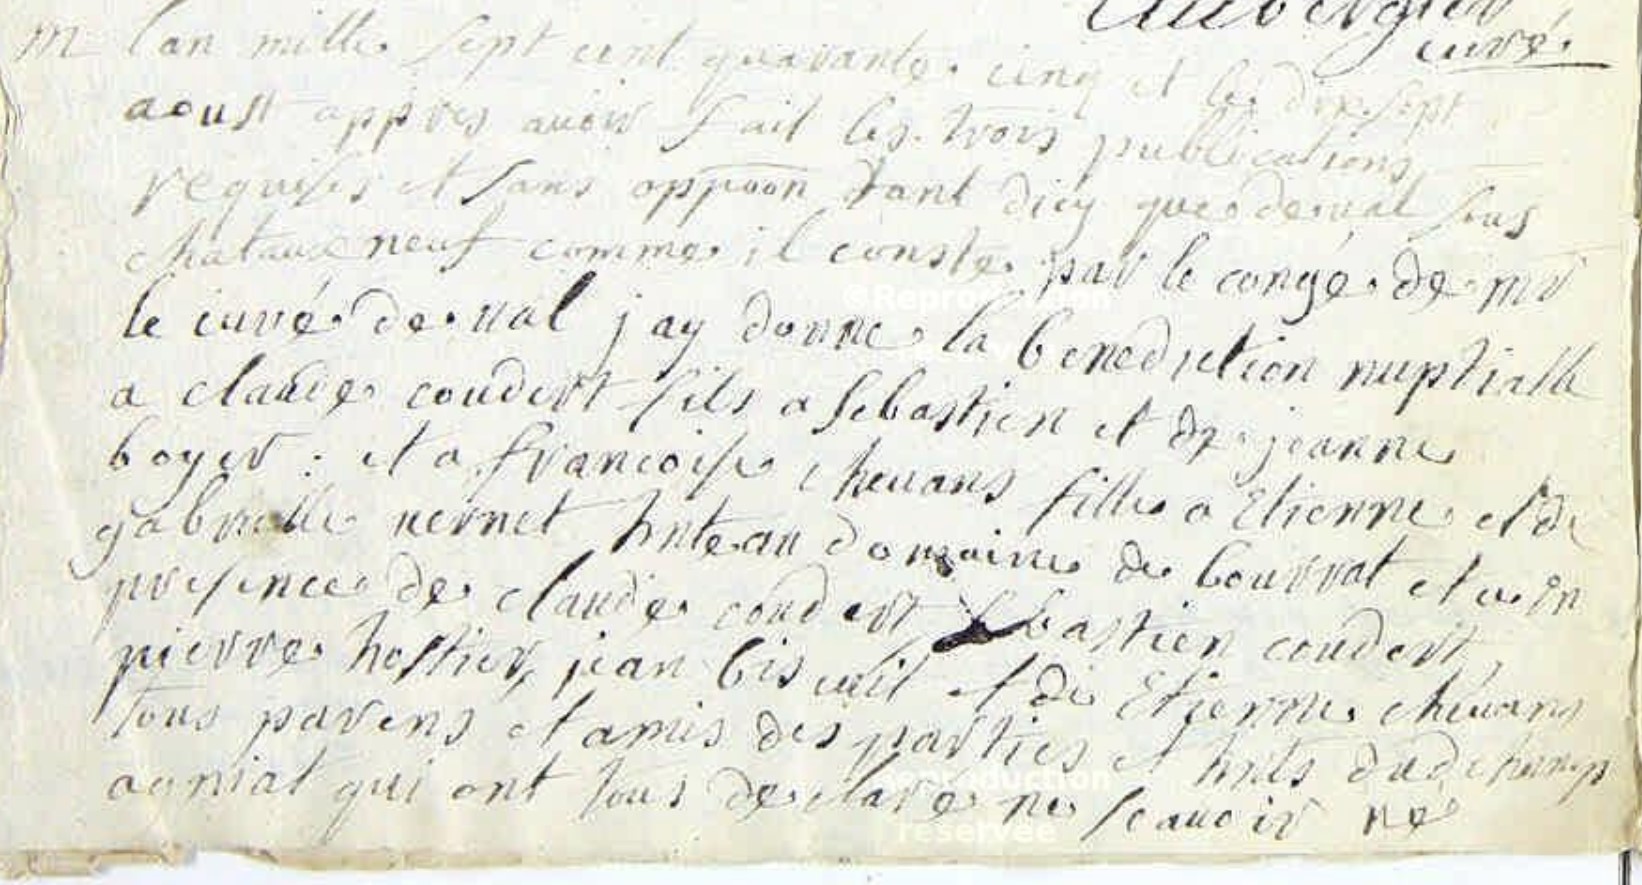 Aubergier
curé.
m l'an mille sept cent quarante cinq et le dix sept
aoust appres auoir fait les trois publications
requises et sans oppoon tant dicy que de ual sous
chataux neuf comme il conste par le congé de mr
le curé de ual j ay donne la benediction nuptialle
a claude coudert fils a sebastien et de jeanne
boyer : et a francoise cheuans fille a Etienne et de
gabrielle uernet hnte au domaine de bourrat et ce en
presence de claude coudert, sebastien coudert,
pierre hostier, jean biscuit et de Etienne cheuans
tous parens et amis des parties et hnts dud
qui ont tous declaré ne scauoir ne